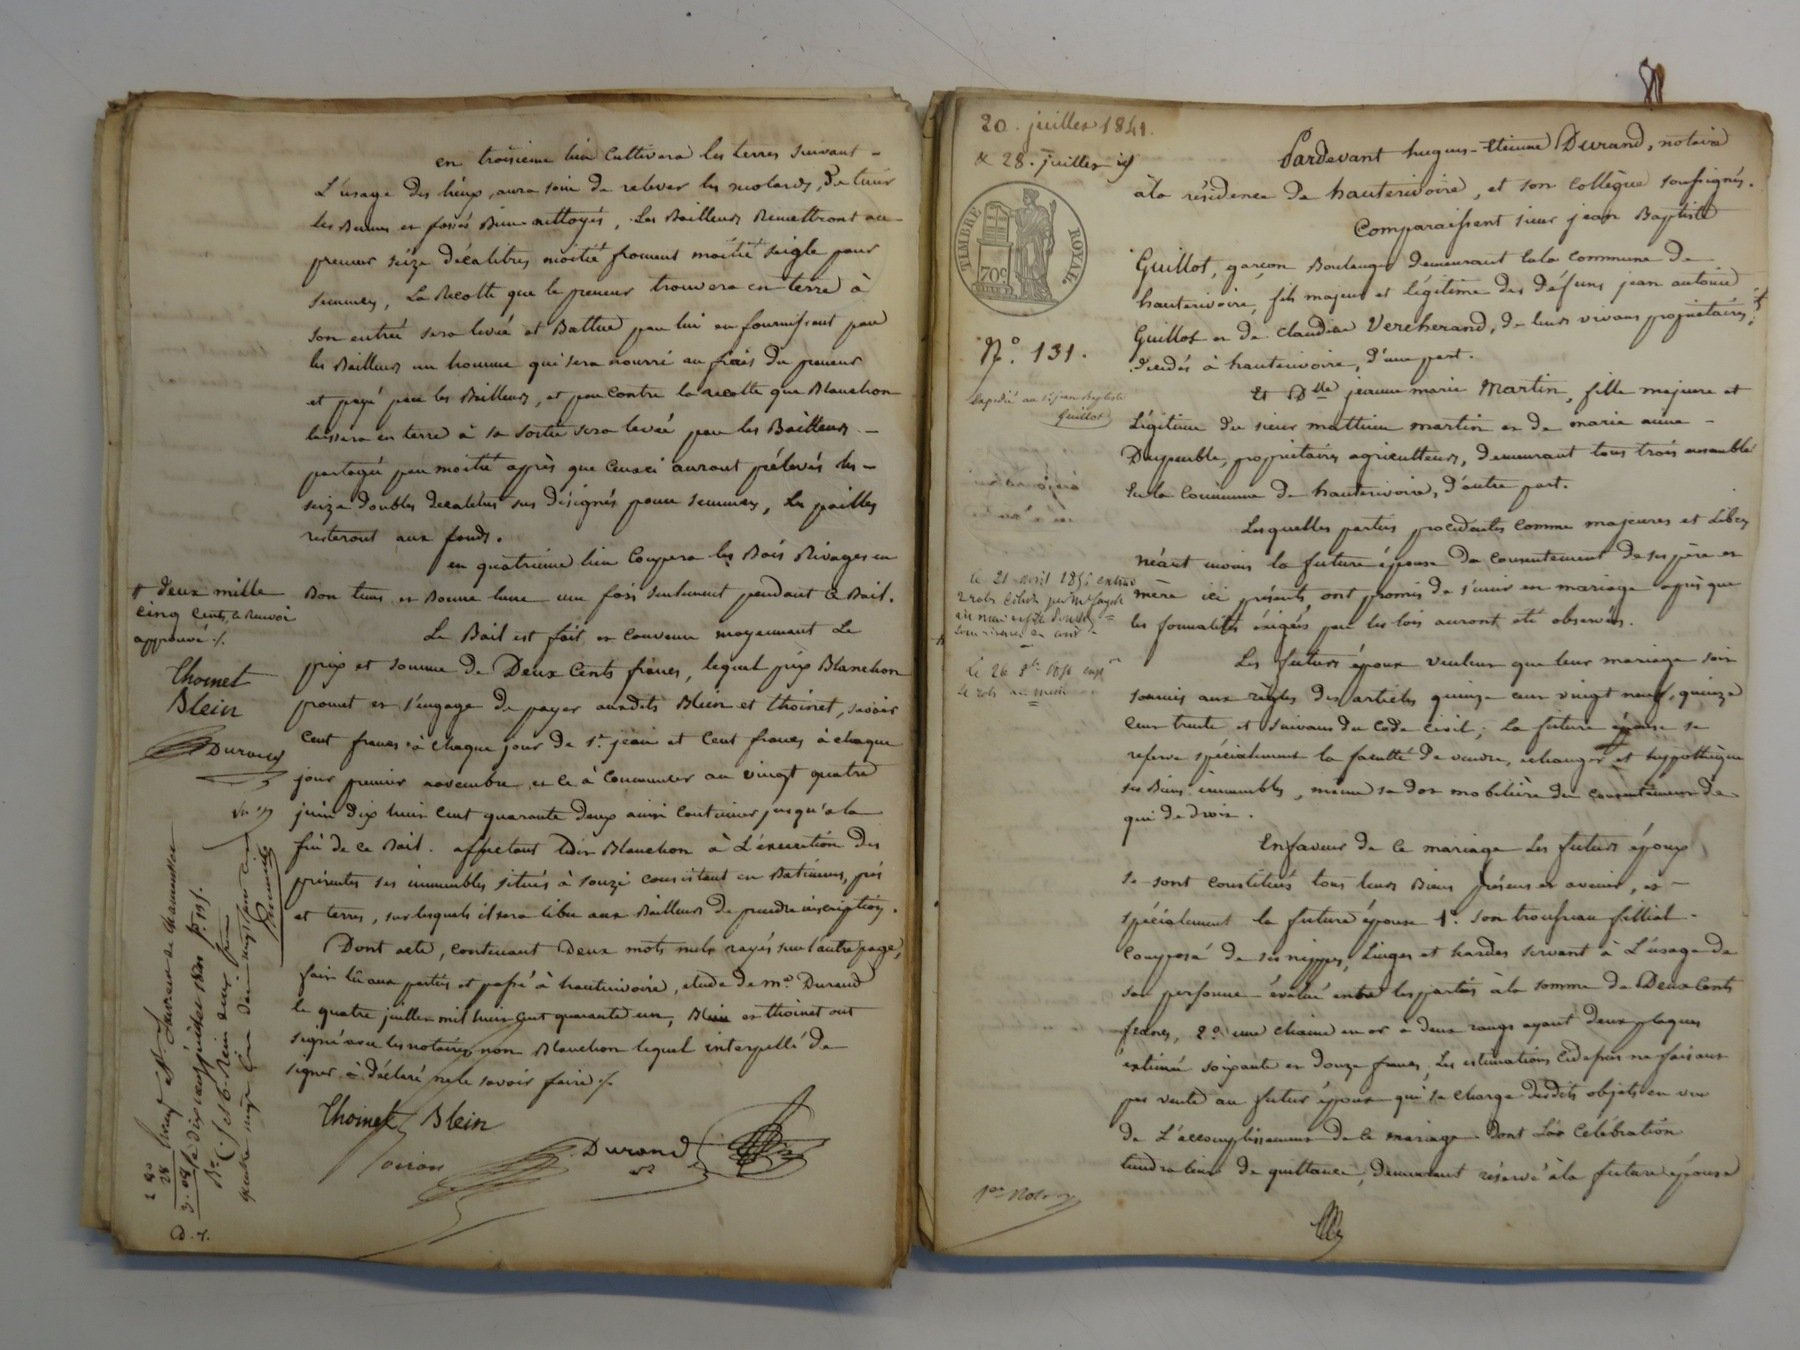 en troisième lieu Cultivera les terres suivant -
L'usage des lieux, aura soin de relever les molards, De tenir
les Bennes et fossés Bien nettoyés, Les Bailleurs Remettront au
preneur seize décalitres moitié froment moitié seigle pour
semmer, La Recolte que le preneur trouvera en terre à
son entrée sera levée et Battue par lui en fournissant par
les Bailleurs un homme qui sera nourri au frais du preneur
et payé par les Bailleurs, et par contre la recolte que Blanchon
laissera en terre à sa sortie sera levée par les Bailleurs -
partagée par moitié après que Ceuxci auront prélevés les -
seize doubles decalitres sus désignés pour semmer, Les pailles
resteront aux fonds.
en quatrieme lieu Coupera les Bois Rivages en
Bon tems et Bonne lune une fois seulement pendant ce Bail.
Le Bail est fait et Convenu moyennant Le
prix et somme de Deux Cents francs, lequel prix Blanchon
promet et s'engage de payer auxdits Blein et thoinet, savoir
Cent francs à chaque jour de St. jean et Cent francs à chaque
jour premier novembre, et ce à Commencer au vingt quatre
juin dix huit Cent quarante deux ainsi Continuer jusqu'à la
fin de ce Bail. affectant ledit Blanchon à L'exécution des
présentes ses immeubles situés à souzi consistant en Batimens, prés
et terres, sur lesquels il sera libre aux Bailleurs de prendre inscription.
Dont acte, contenant Deux mots nuls rayés sur l'autre page,
fait lû aux parties et passé à hauterivoire, etude de me. Durand
le quatre juillet mil huit cent quarante un, Blein et thoinet ont
signé avec les notaires non Blanchon lequel interpellé de
signer à déclaré ne le savoir faire ./.
Thoinet Blein
Durand
+ deux mille
cinq cents, le Renvoi
approuvé ./.
Thoinet
Blein
Durand
20. juillet 1841.
& 28. juillet
TIMBRE ROYAL
70c
N.° 131.
Expédié au sr jean Baptiste
Guillot
Pardevant hugues-Etienne Durand, notaire
à la résidence de hauterivoire, et son Collègue soussignés.
Comparaissent sieur jean Baptiste
Guillot, garçon Boulanger demeurant la la commune de
hauterivoire, fils majeur et légitime des défunts jean antoine
Guillot et de claudine Vercherand, de leurs vivans propriétaires,
décédés à hauterivoire, d'une part.
Et Dlle jeanne marie Martin, fille majeure et
Légitime du sieur matthieu martin et de marie anne -
Dupeuble, propriétaires agriculteurs, demeurant tous trois ensemble
sur la Commune de hauterivoire, d'autre part.
Lesquelles parties procédantes Comme majeures et Libres
néant moins la future épouse du consentement de ses père et
mère ici présents ont promis de s'unir en mariage après que
les formalités éxigées par les lois auront été observées.
Les futurs époux veulent que leur mariage soit
soumis aux règles des articles quinze cent vingt neuf, quinze
Cent trente et suivans du Code Civil; La future épouse se
reserve spécialement la faculté de vendre, echanger et hyppothéquer
ses Biens immeubles, même sa dot mobilière du consentement de
qui de droit.
Enfaveur de Ce mariage Les futurs époux
se sont Constitués tous leurs Biens présens et avenir, et -
spécialement la future épouse 1°. son trousseau filliat -
Composé de ses nippes, Linges et hardes servant à L'usage de
sa personne évalué entre les parties à la somme de Deux Cents
francs, 2°. une chaine en or à deux rangs ayant deux plaques
éstimée soixante et douze francs, Les estimations Cidessus ne faisant
pas vente au futur époux qui se charge desdits objets en vue
de L'accomplissement de Ce mariage dont La Célébration
tiendra lieu de quittance, demeurant réservé à la future épouse